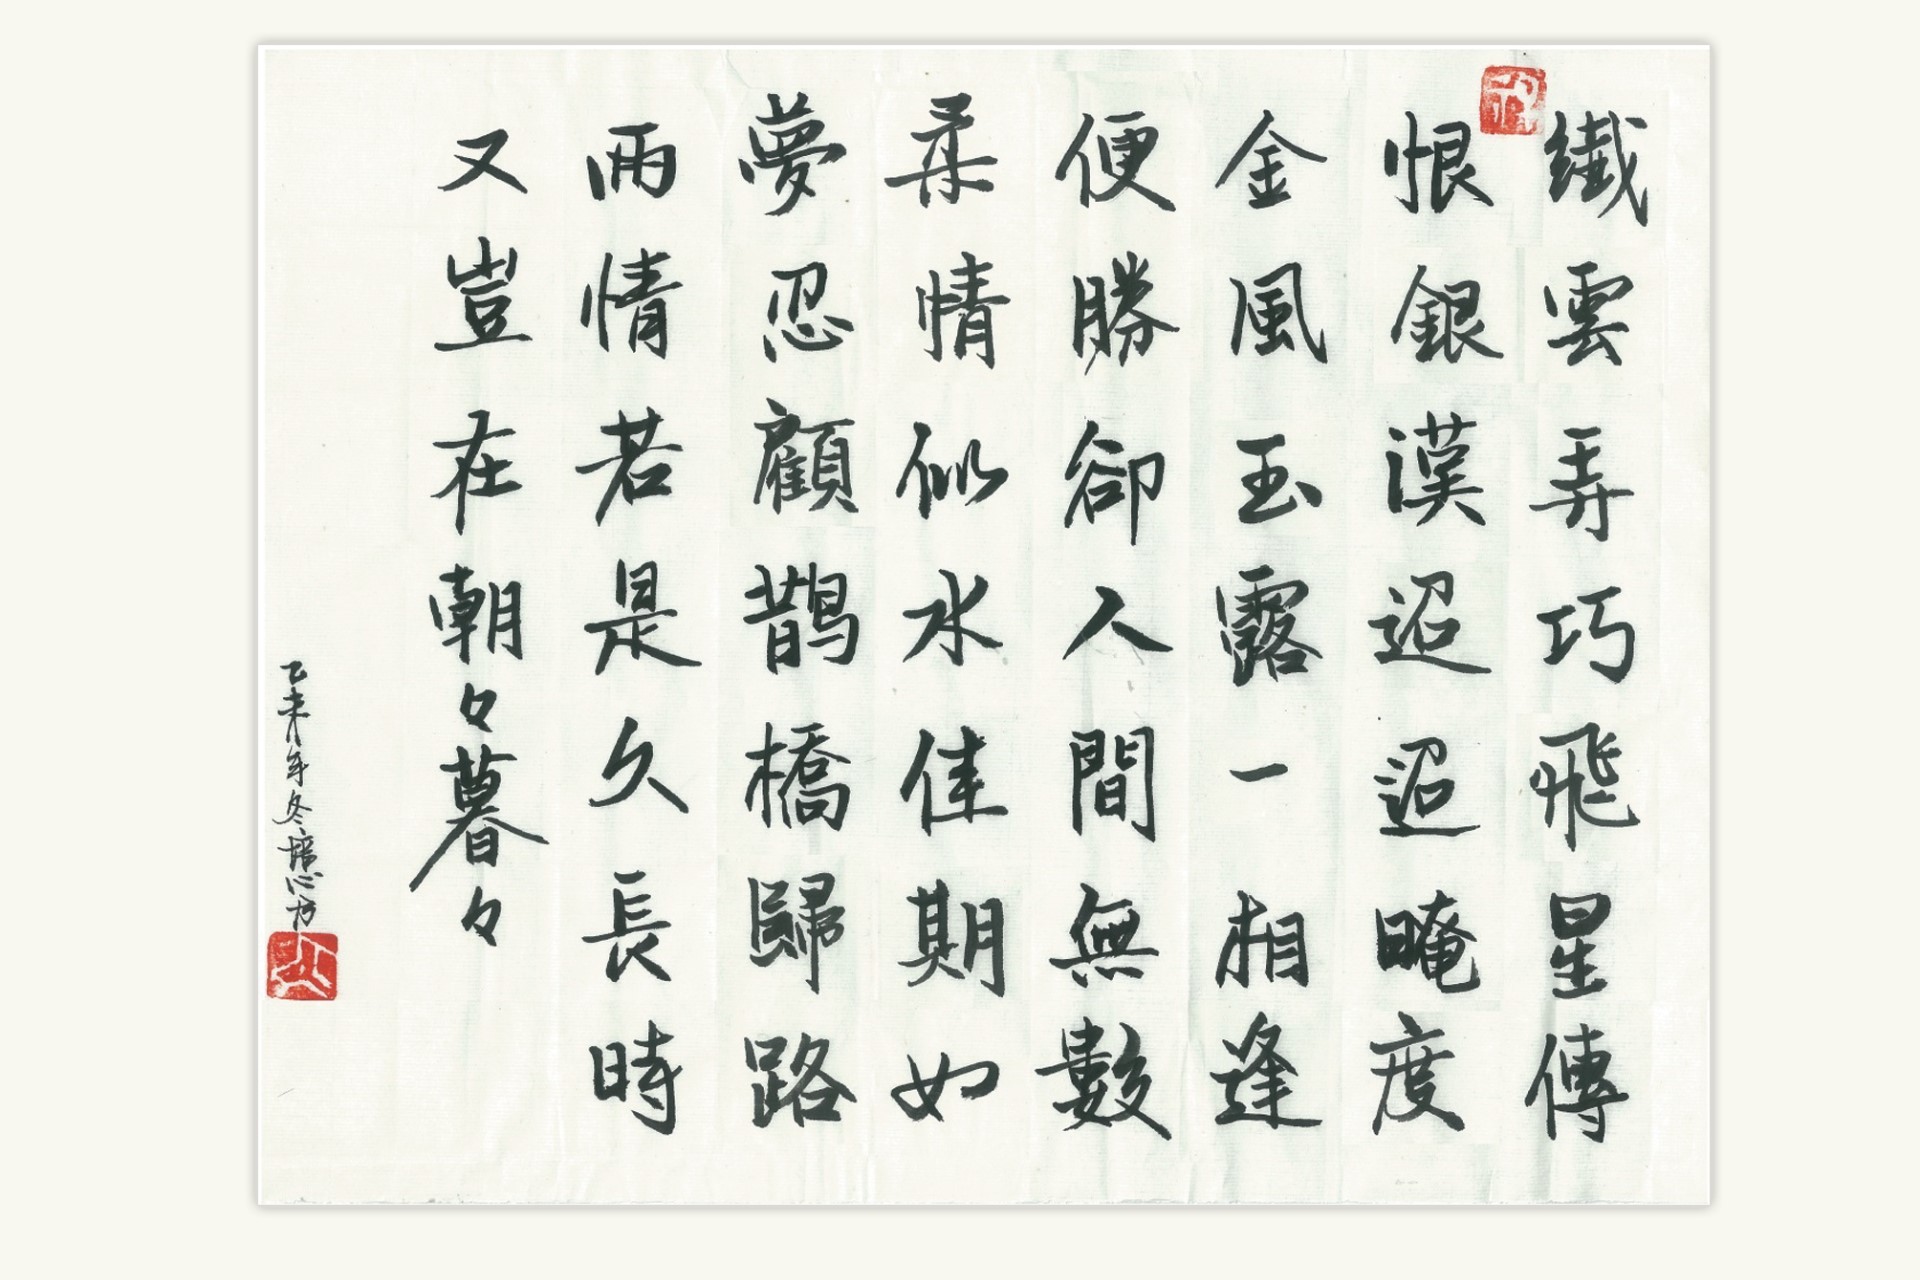 纖雲弄巧飛星傳
恨銀漢迢迢晻度
金風玉露一相逢
便勝卻人間無數
柔情似水佳期如
夢忍顧鵲橋歸路
兩情若是久長時
又豈在朝々暮々
乙未年冬培心坊